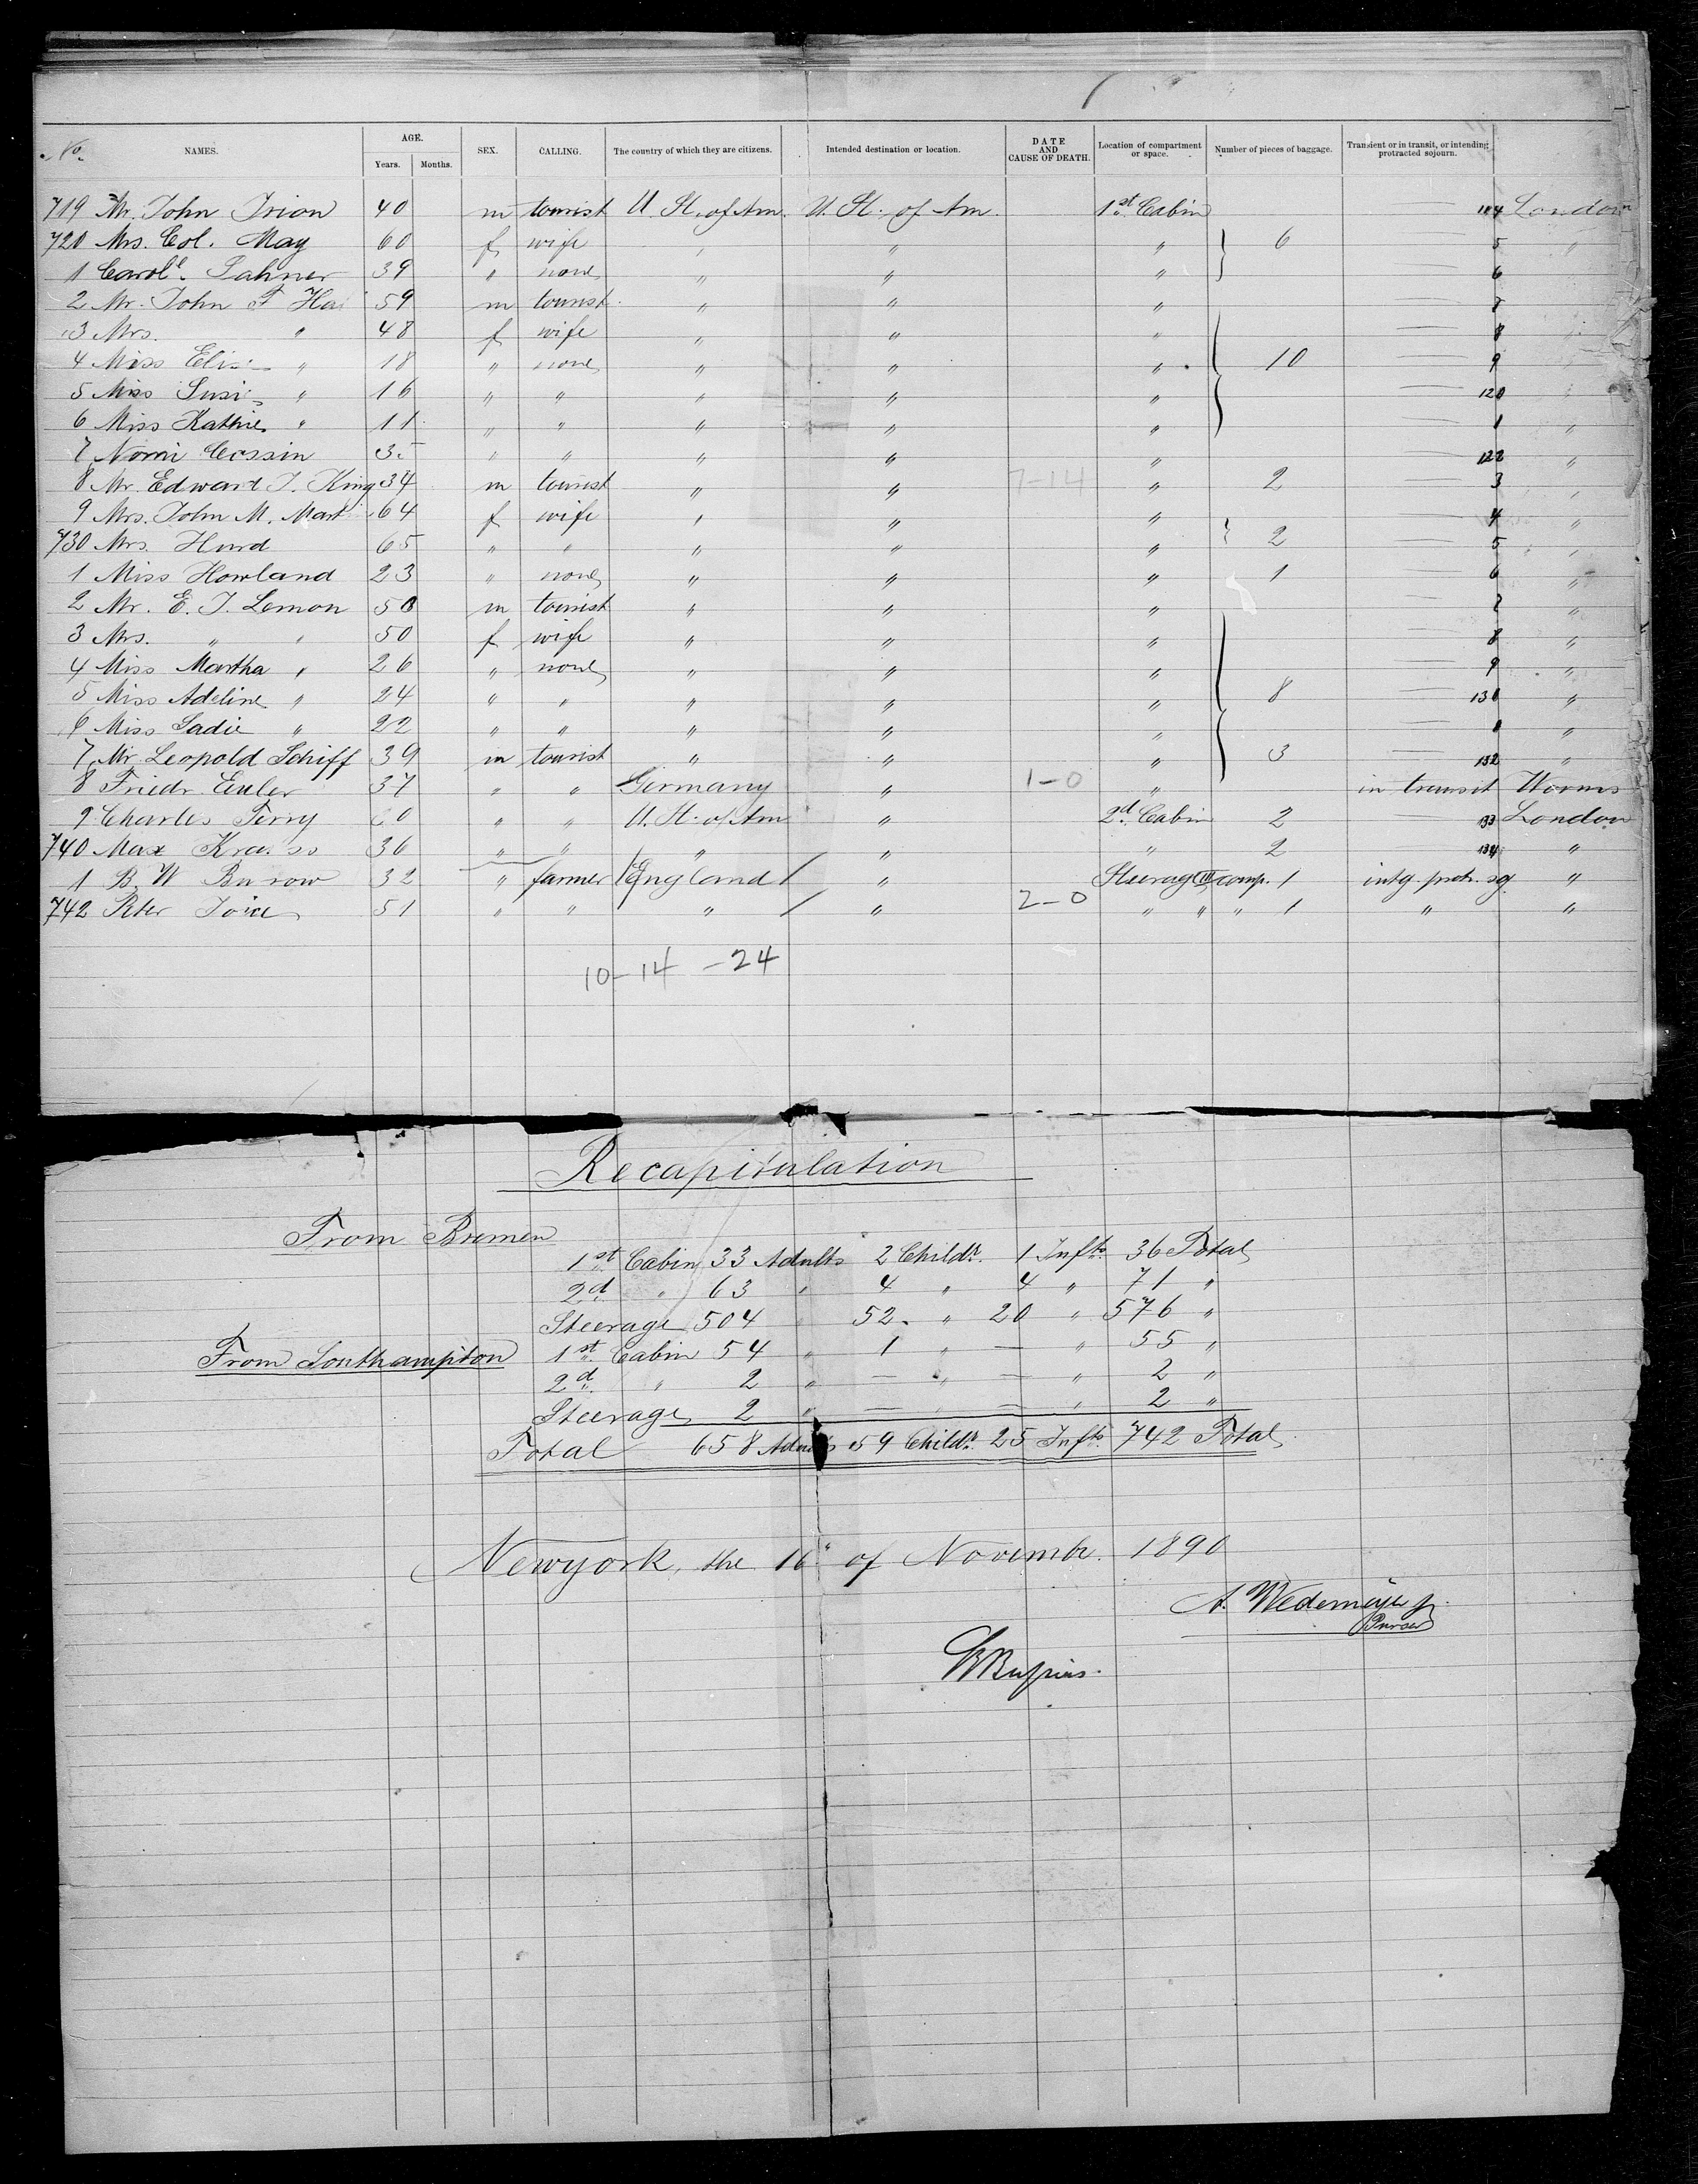 No. NAMES. AGE. Years. Months. SEX. CALLING. The country of which they are citizens. Intended destination or location. DATE AND CAUSE OF DEATH. Location of compartment or space. Number of pieces of baggage. Transient or in transit, or intending protracted sojourn.
719 Mr. John Trion 40 m tourist U. St. of Am. U. St. of Am. 1st Cabin — 114 London
720 Mrs. Col. May 60 f wife " " " 6 — 5 "
1 Carole. 39 " none " " " — 6 "
2 Mr. John F 59 m tourist " " " — 7 "
3 Mrs. " 48 f wife " " " — 8 "
4 Miss " 18 " none " " " 10 — 9 "
5 Miss Susie " 16 " " " " " — 120 "
6 Miss Kathie " 11 " " " " " — 1 "
7 Nomi Cossin " " " " " — 122 "
8 Mr. Edward J. King 34 m tourist " " 7-14 " 2 — 3 "
9 Mrs. John M. 64 f wife " " " — 4 "
730 Mrs. Hurd 65 " " " " " 2 — 5 "
1 Miss Howland 23 " none " " " 1 — 6 "
2 Mr. E. J. Lemon 50 m tourist " " " — 7 "
3 Mrs. " " 50 f wife " " " — 8 "
4 Miss Martha " 26 " none " " " — 9 "
5 Miss Adeline " 24 " " " " " 8 — 130 "
6 Miss Sadie " 22 " " " " " — 1 "
7 Mr. Leopold Schiff 39 m tourist " " " 3 — 132 "
8 Friedr. Euler 37 " " Germany " 1-0 " in transit Worms
9 Charles Terry " " U. St. of Am " 2d. Cabin 2 133 London
740 Max Krauss 36 " " " " " 2 134 "
1 B. W. Burow 32 " farmer England " Steerage III comp. 1 intg. protr. sg. "
742 Peter Joice 51 " " " " 2-0 " " " 1 " "
10-14 -24
Recapitulation
From Bremen
1st Cabin 33 Adults 2 Childr. 1 Infts. 36 Total
2d. " 63 " 4 " 4 " 71 "
Steerage 504 " 52 " 20 " 576 "
From Southampton 1st Cabin 54 " 1 " — " 55 "
2d. " 2 " — " — " 2 "
Steerage 2 " — " — " 2 "
Total 658 Adults 59 Childr. 25 Infts. 742 Total
Newyork, the 16" of Novembr. 1890
A. Wedemeyer
Purser